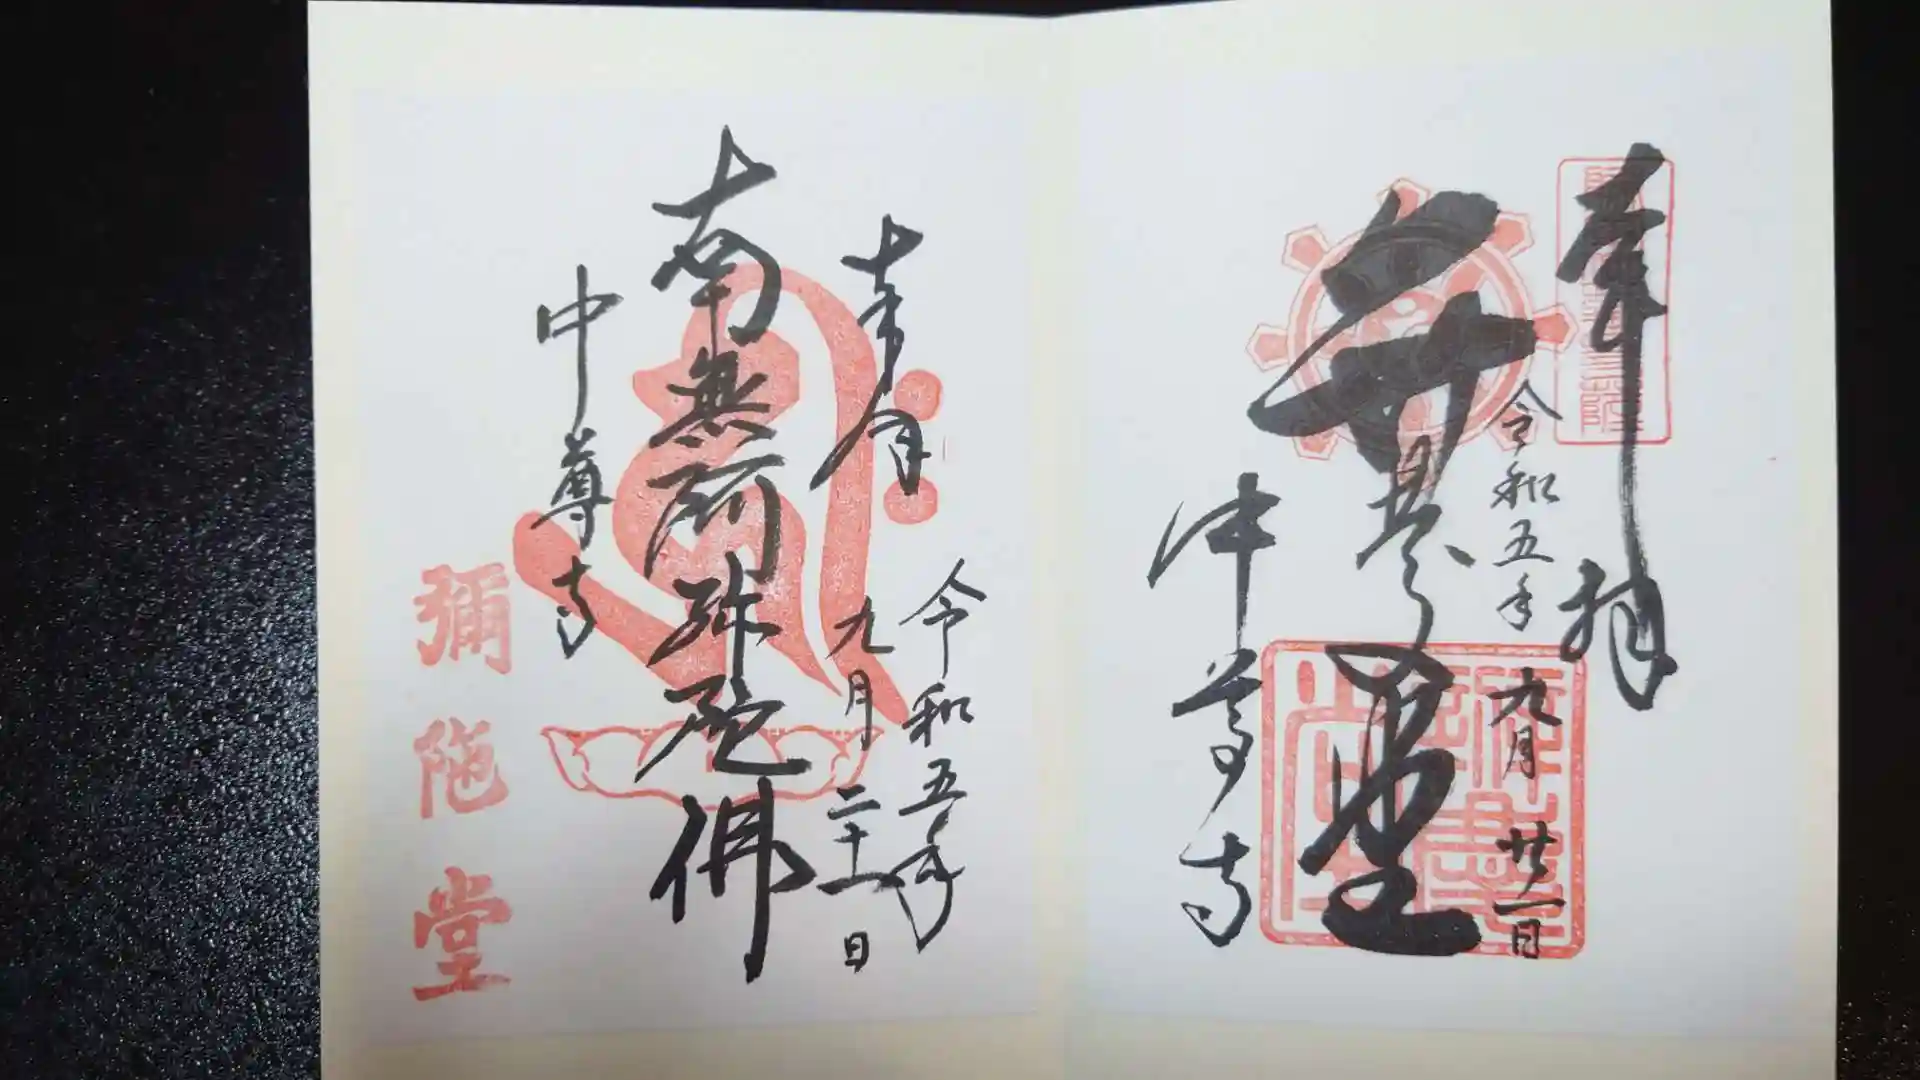 奉拝
令和五年
九月廿一日
弁慶堂
中尊寺
奉
令和五年
九月二十一日
南無阿弥陀佛
中尊寺
彌陁堂